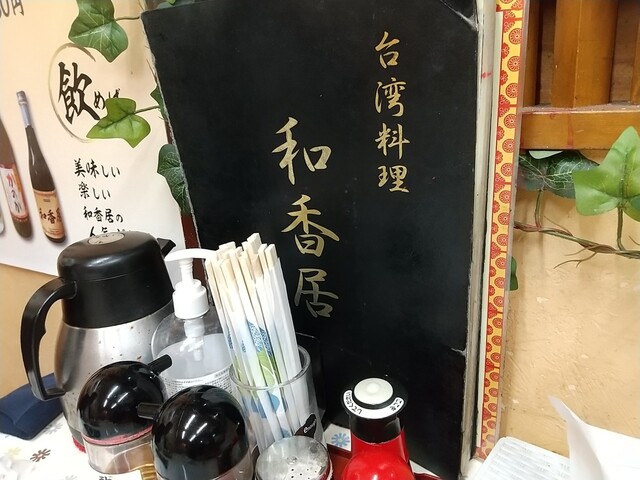 0円
飲めば
美味しい
楽しい
和香居の
台湾料理
和香居